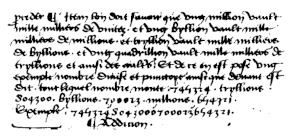 predes ¶ Item lon doit sauoir que vng million vault
mille milliers de vnitez, et vng byllion vault mille
milliers de millions. et tryllion vault mille milliers
de byllions. et vng quadrillion vault mille milliers de
tryllions et ainsi des aultres. Et de ce en est pose vng
exemple nombre diuise et punctoye ainsi que deuant est
dit. tout lequel nombre monte 745324. tryllions
804300. byllions. 700023. millions. 654321.
Exemple. 745324804300700023654321
¶ Addicion.